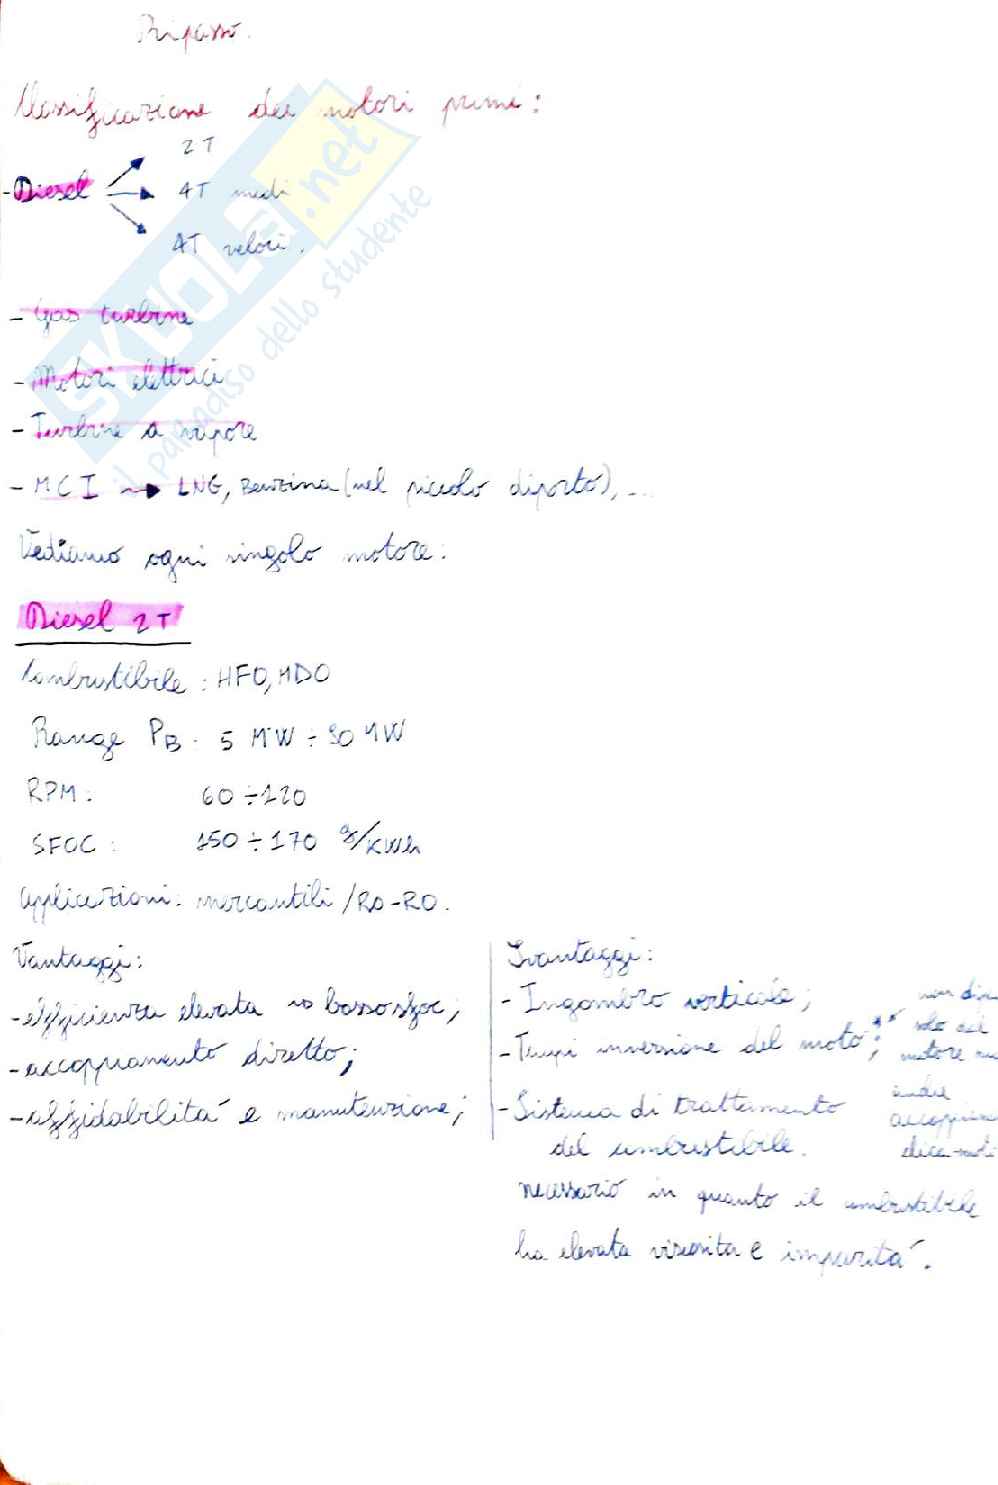 Ripasso.
Classificazione dei motori primi:
2T
- Diesel → 4T medi
4T veloci.
- Gas turbine
- Motori elettrici
- Turbine a vapore
- MCI → LNG, Benzina (nel piccolo diporto), ...
Vediamo ogni singolo motore:
Diesel 2T
Combustibile: HFO, MDO
Range PB: 5 MW ÷ 90 MW
RPM: 60 ÷ 120
SFOC: 150 ÷ 170 g/kWh
Applicazioni: mercantili / RO-RO.
Vantaggi:
- efficienza elevata → basso sfoc;
- accoppiamento diretto;
- affidabilità e manutenzione;
Svantaggi:
- Ingombro verticale;
- Tempi inversione del moto;
- Sistema di trattamento
del combustibile.
necessario in quanto il combustibile
ha elevata viscosità e impurità.
solo del
motore
SKUOLA.net
il paradiso dello studente